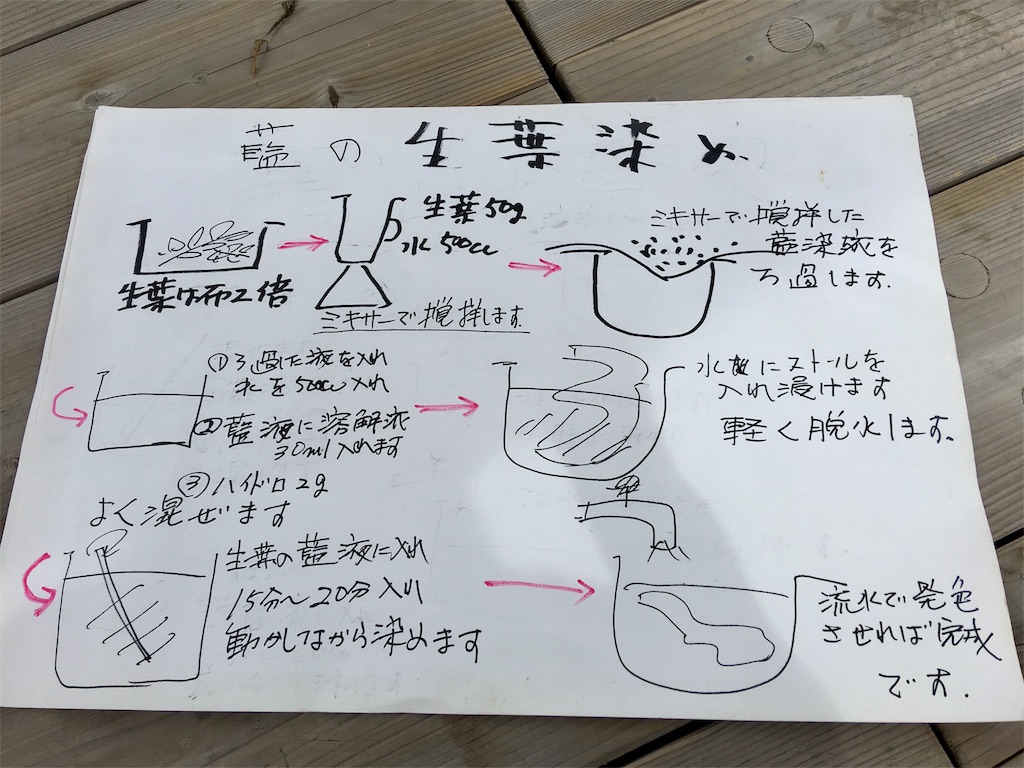 藍の生葉染め
生葉は布の2倍
生葉50g
水500cc
ミキサーで撹拌します
ミキサーで撹拌した
藍染液を
ろ過します.
①ろ過した液を入れ
水を500cc入れ
②藍液に溶解液
30ml入れます
③ハイドロ2g
よく混ぜます
水にストールを
入れ浸けます
軽く脱水します.
生葉の藍液に入れ
15分～20分入れ
動かしながら染めます
流水で発色
させれば完成
です.